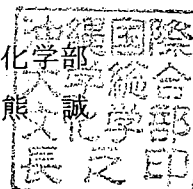 化学部
熊 誠
沖縄国際
大学総合
文化学部
長之印